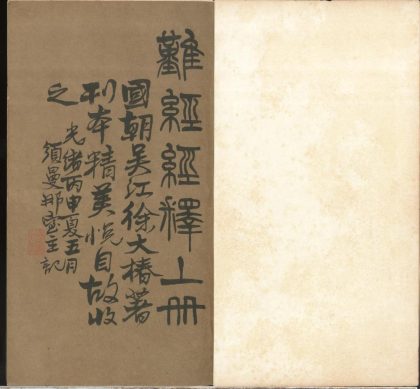 難經經釋上冊
國朝吳江徐大椿著
刊本精美悅目故收
之
光緒丙申夏五月
須曼那室主記